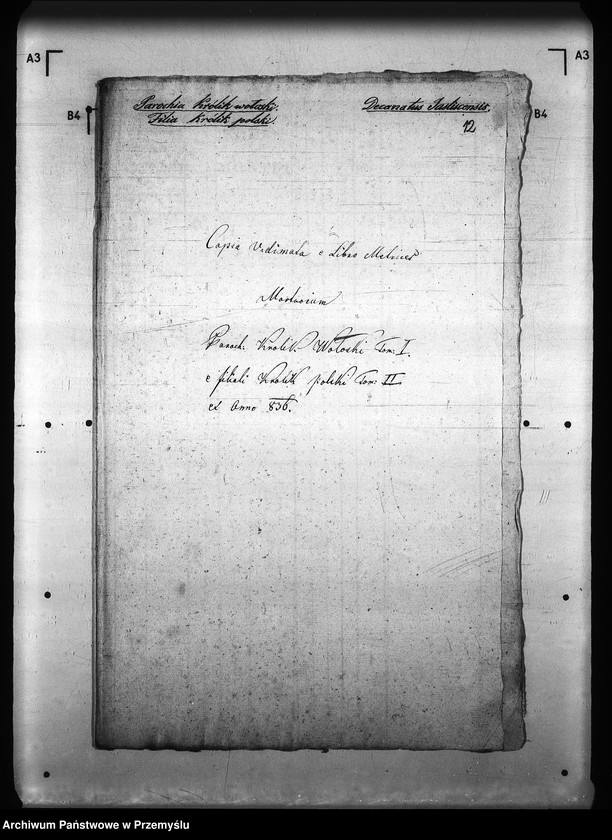 A3
A3
B4
B4
Parochia Królik wołoski.
Filia Królik polski.
Decanatus Jasliscensis.
12
Copia Vidimata e Libro Metrices
Mortuorum
Paroch. Krolik Wołoski Tom: I.
e filiali Krolik polski Tom: II
ex Anno 836.
Archiwum Państwowe w Przemyślu